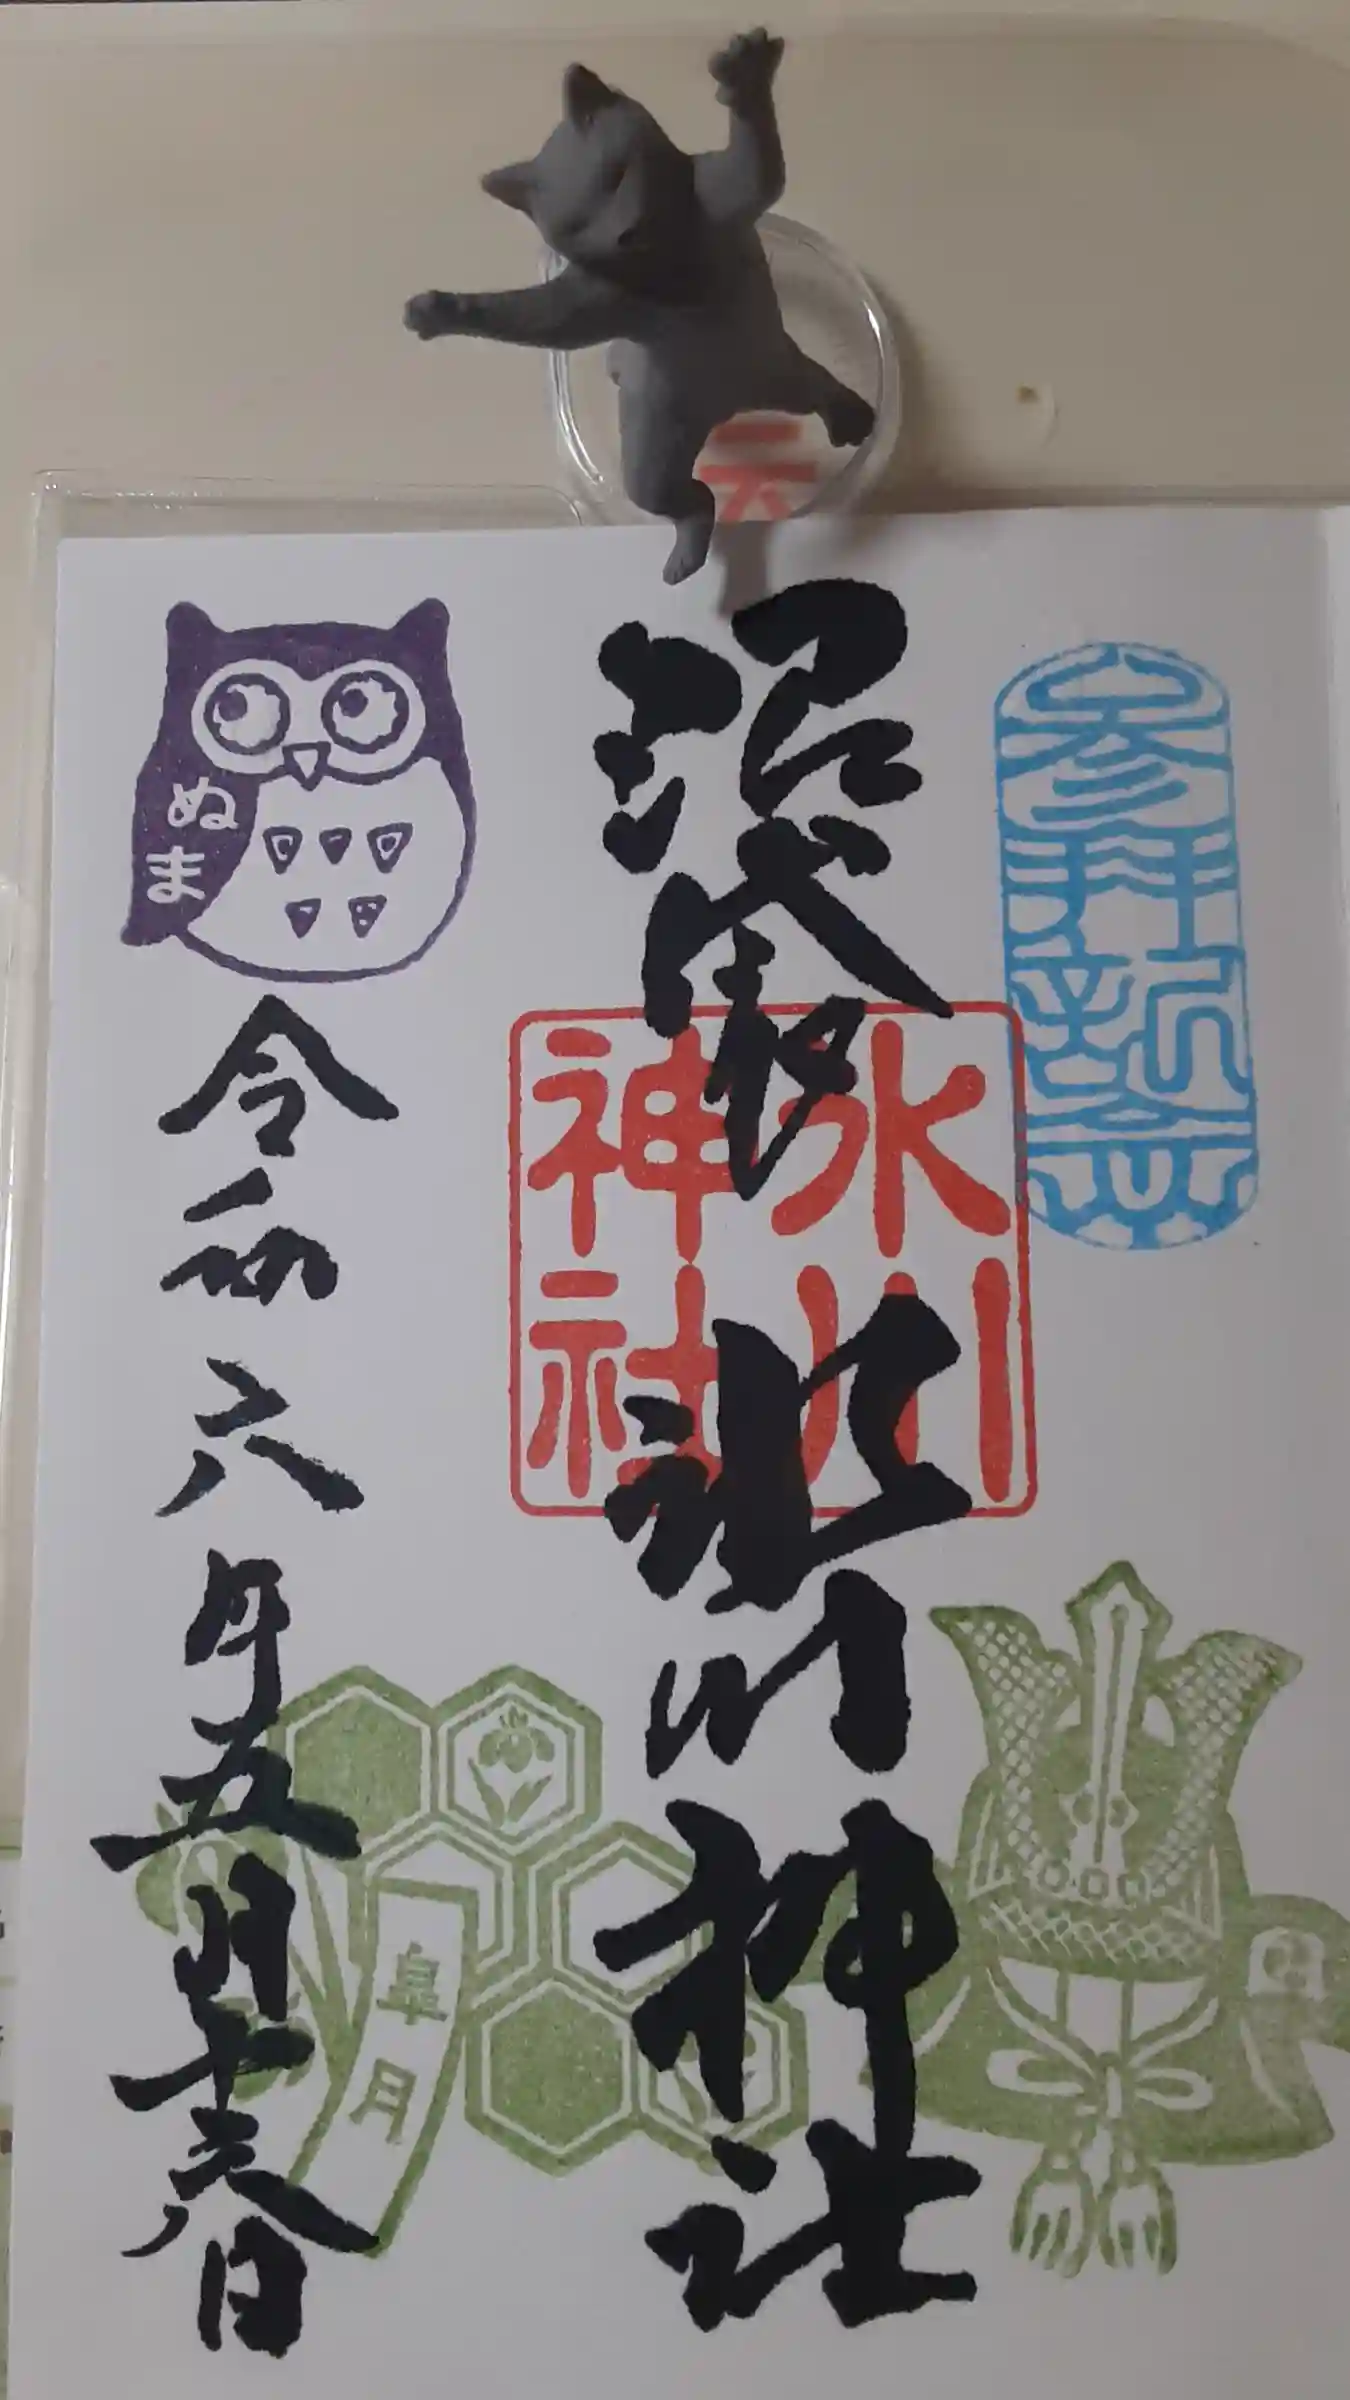 参拝記念
沼袋
氷川神社
氷川
神社
ぬま
令和六年五月十六日
皐月